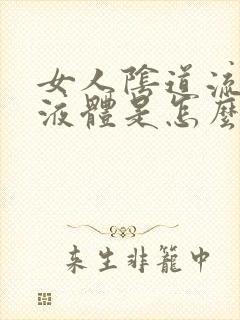 女人陰道流
液體是怎麼
来生非籠中